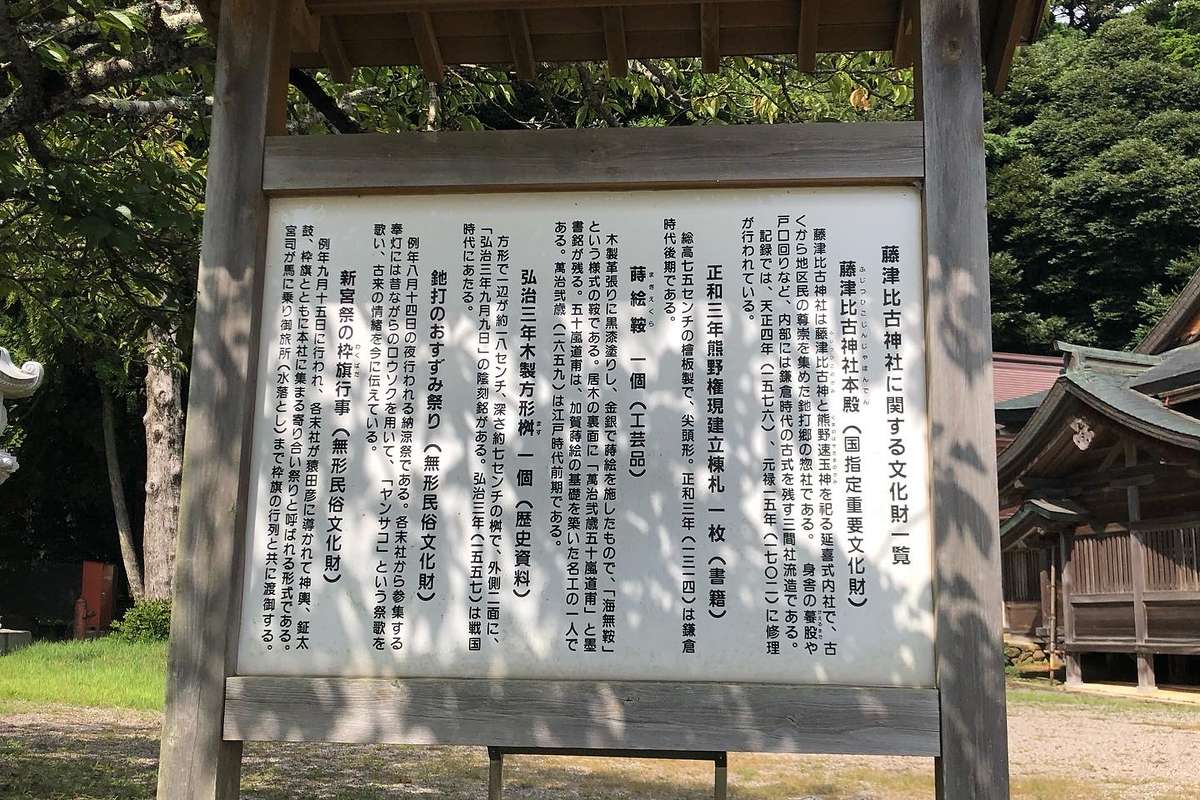 藤津比古神社に関する文化財一覧
藤津比古神社本殿（国指定重要文化財）
ふじつひこじんじゃほんでん
藤津比古神社は藤津比古神と熊野速玉神を祀る延喜式内社で、古
くから地区民の尊崇を集めた釶打郷の惣社である。身舎の蟇股や
戸口回りなど、内部には鎌倉時代の古式を残す三間社流造である。
記録では、天正四年（一五七六）、元禄一五年（一七〇二）に修理
が行われている。
正和三年熊野権現建立棟札　一枚（書籍）
総高七五センチの檜板製で、尖頭形。正和三年（一三一四）は鎌倉
時代後期である。
蒔絵鞍　一個（工芸品）
まきえくら
木製革張りに黒漆塗りし、金銀で蒔絵を施したもので、「海無鞍」
という様式の鞍である。居木の裏面に「萬治弐歳五十嵐道甫」と墨
書銘が残る。五十嵐道甫は、加賀蒔絵の基礎を築いた名工の一人で
ある。萬治弐歳（一六五九）は江戸時代前期である。
弘治三年木製方形桝　一個（歴史資料）
ます
方形で一辺が約一八センチ、深さ約七センチの桝で、外側二面に、
「弘治三年九月九日」の陰刻銘がある。弘治三年（一五五七）は戦国
時代にあたる。
釶打のおすずみ祭り（無形民俗文化財）
例年八月十四日の夜行われる納涼祭である。各末社から参集する
奉灯には昔ながらのロウソクを用いて、「ヤンサコ」という祭歌を
歌い、古来の情緒を今に伝えている。
新宮祭の枠旗行事（無形民俗文化財）
わくばた
例年九月十五日に行われ、各末社が猿田彦に導かれて神輿、鉦太
鼓、枠旗とともに本社に集まる寄り合い祭りと呼ばれる形式である。
宮司が馬に乗り御旅所（水落とし）まで枠旗の行列と共に渡御する。